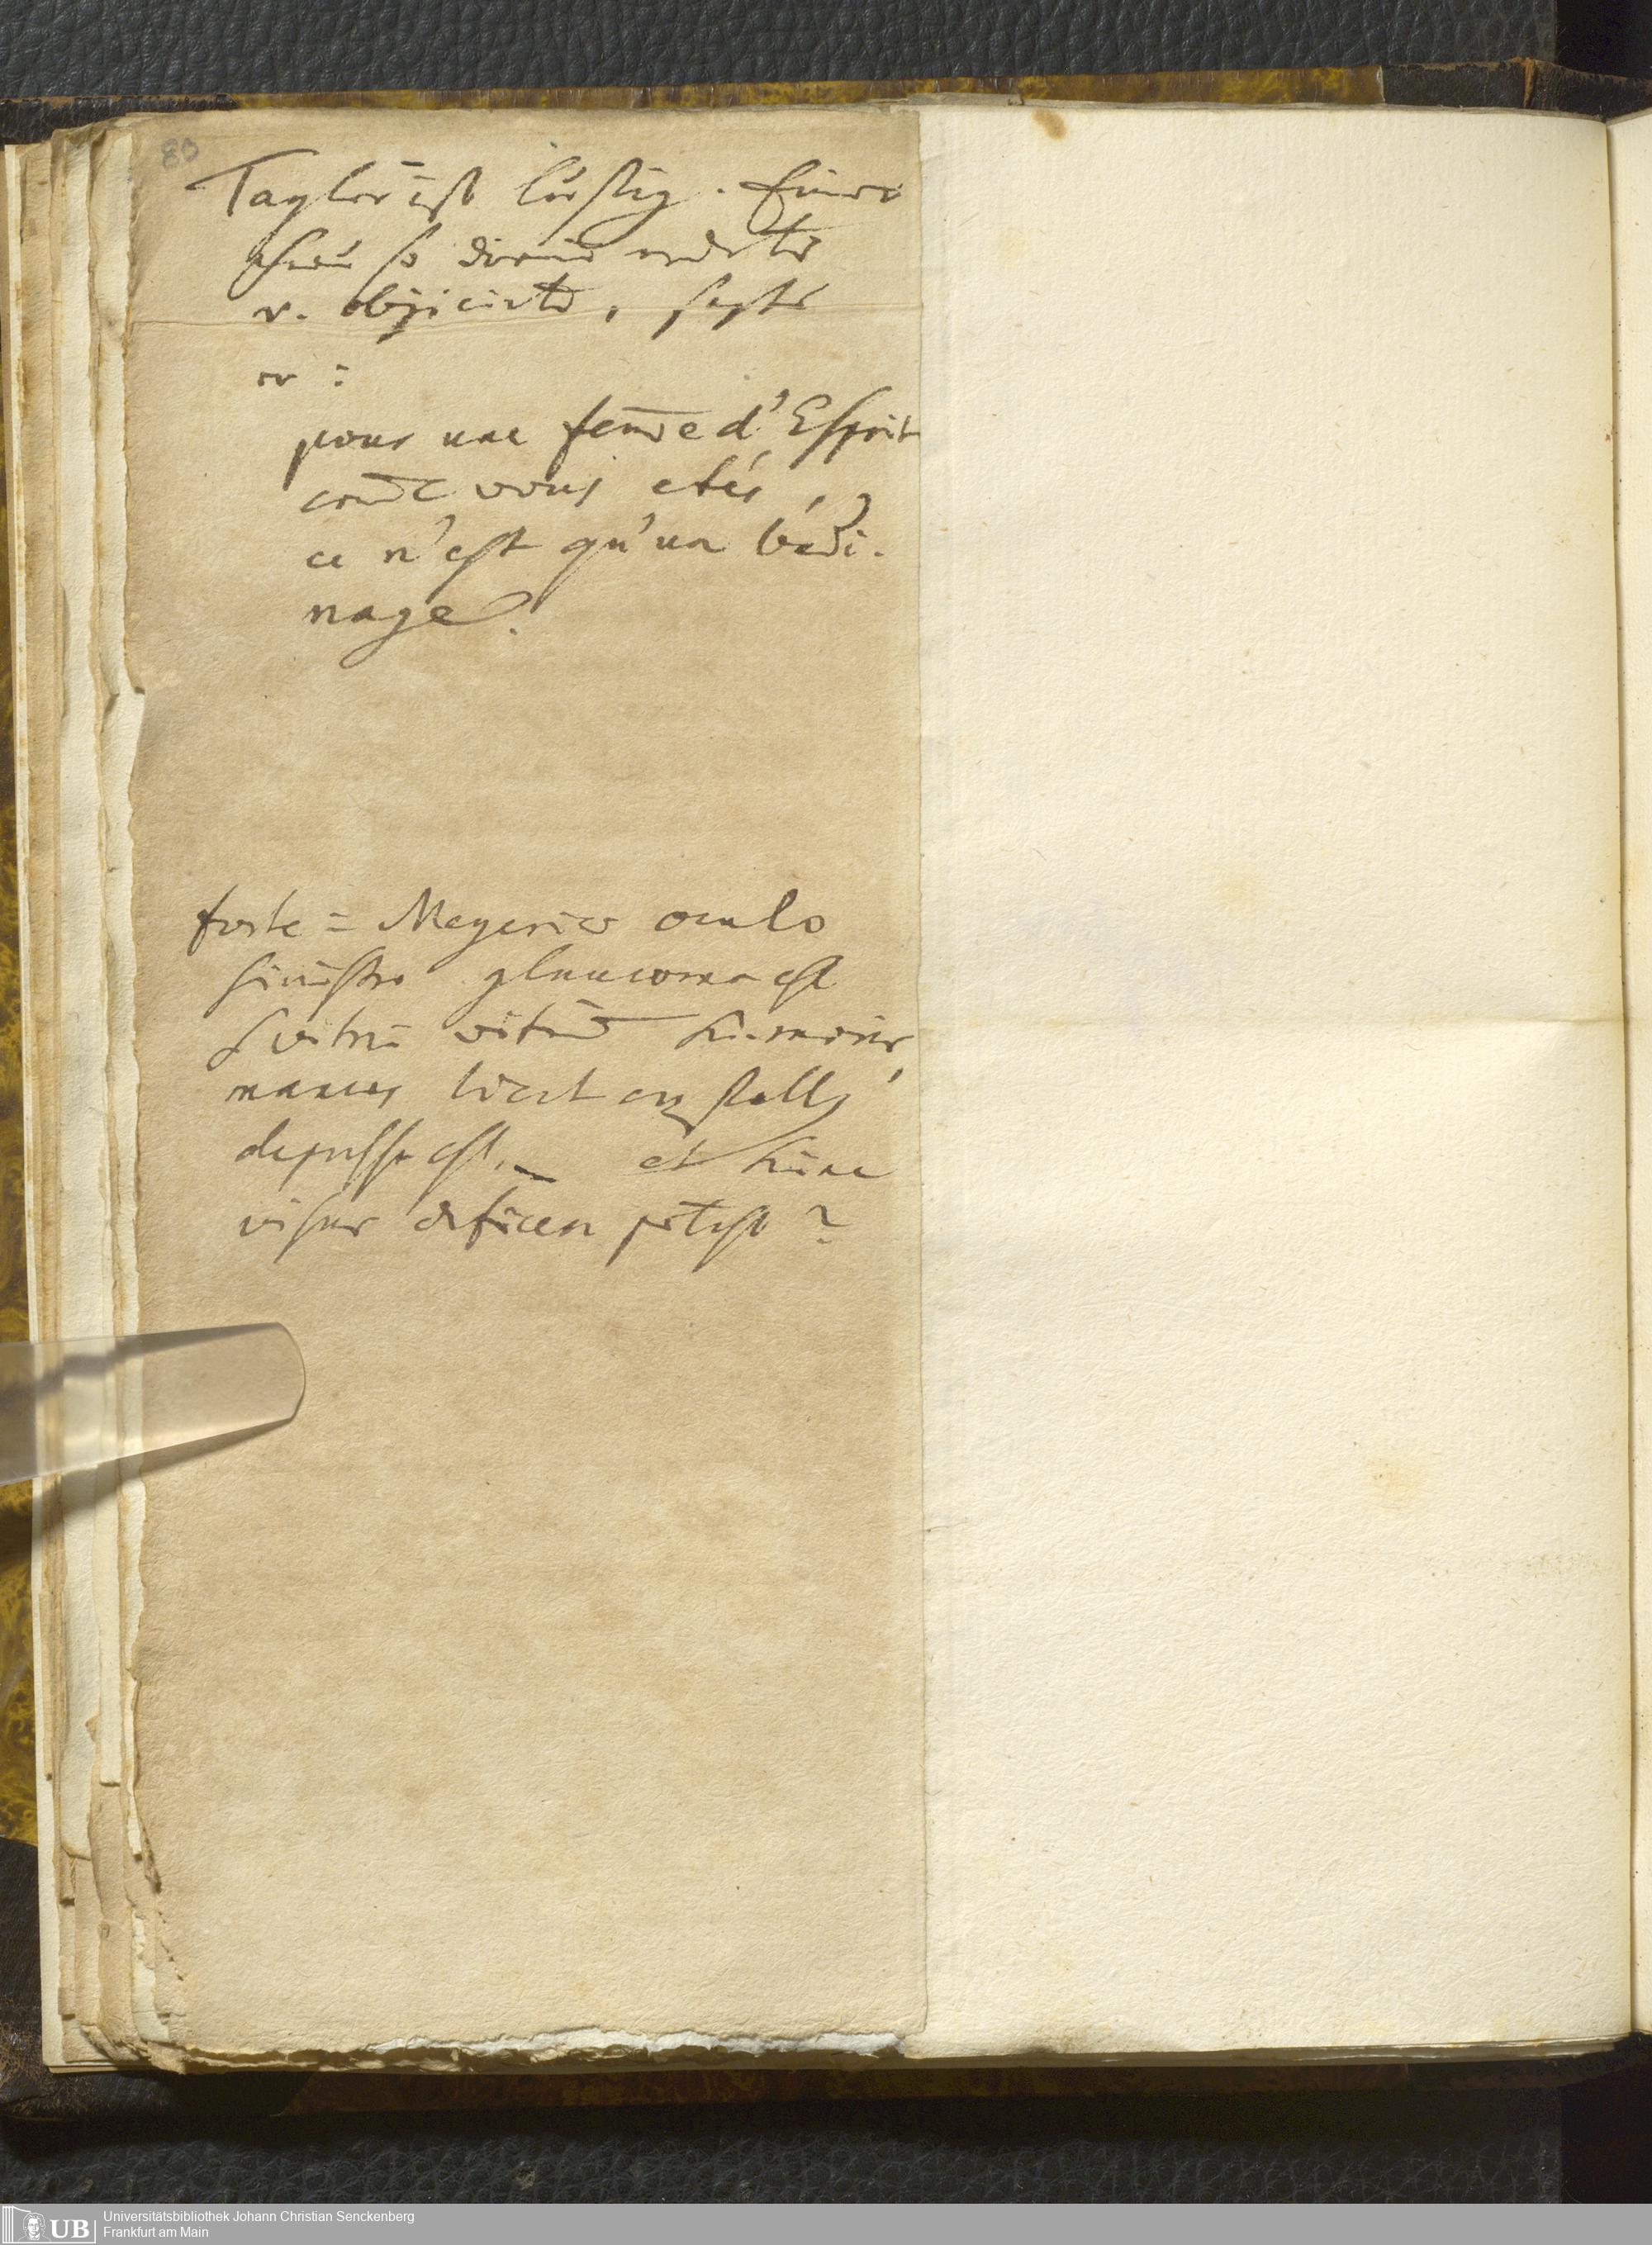 80
Taylor ist lustig. Einer
Frau so
v. objicirte, sagte
er :
pour une fem̄e d'Esprit
com̄e vous etés,
ce n'est qu'un badi-
nage.
forte = Meyerico oculo
sinistro glaucoma est
manus licet crystallus
depressa est. et hinc
visus deficere potest?
UB
Universitätsbibliothek Johann Christian Senckenberg
Frankfurt am Main